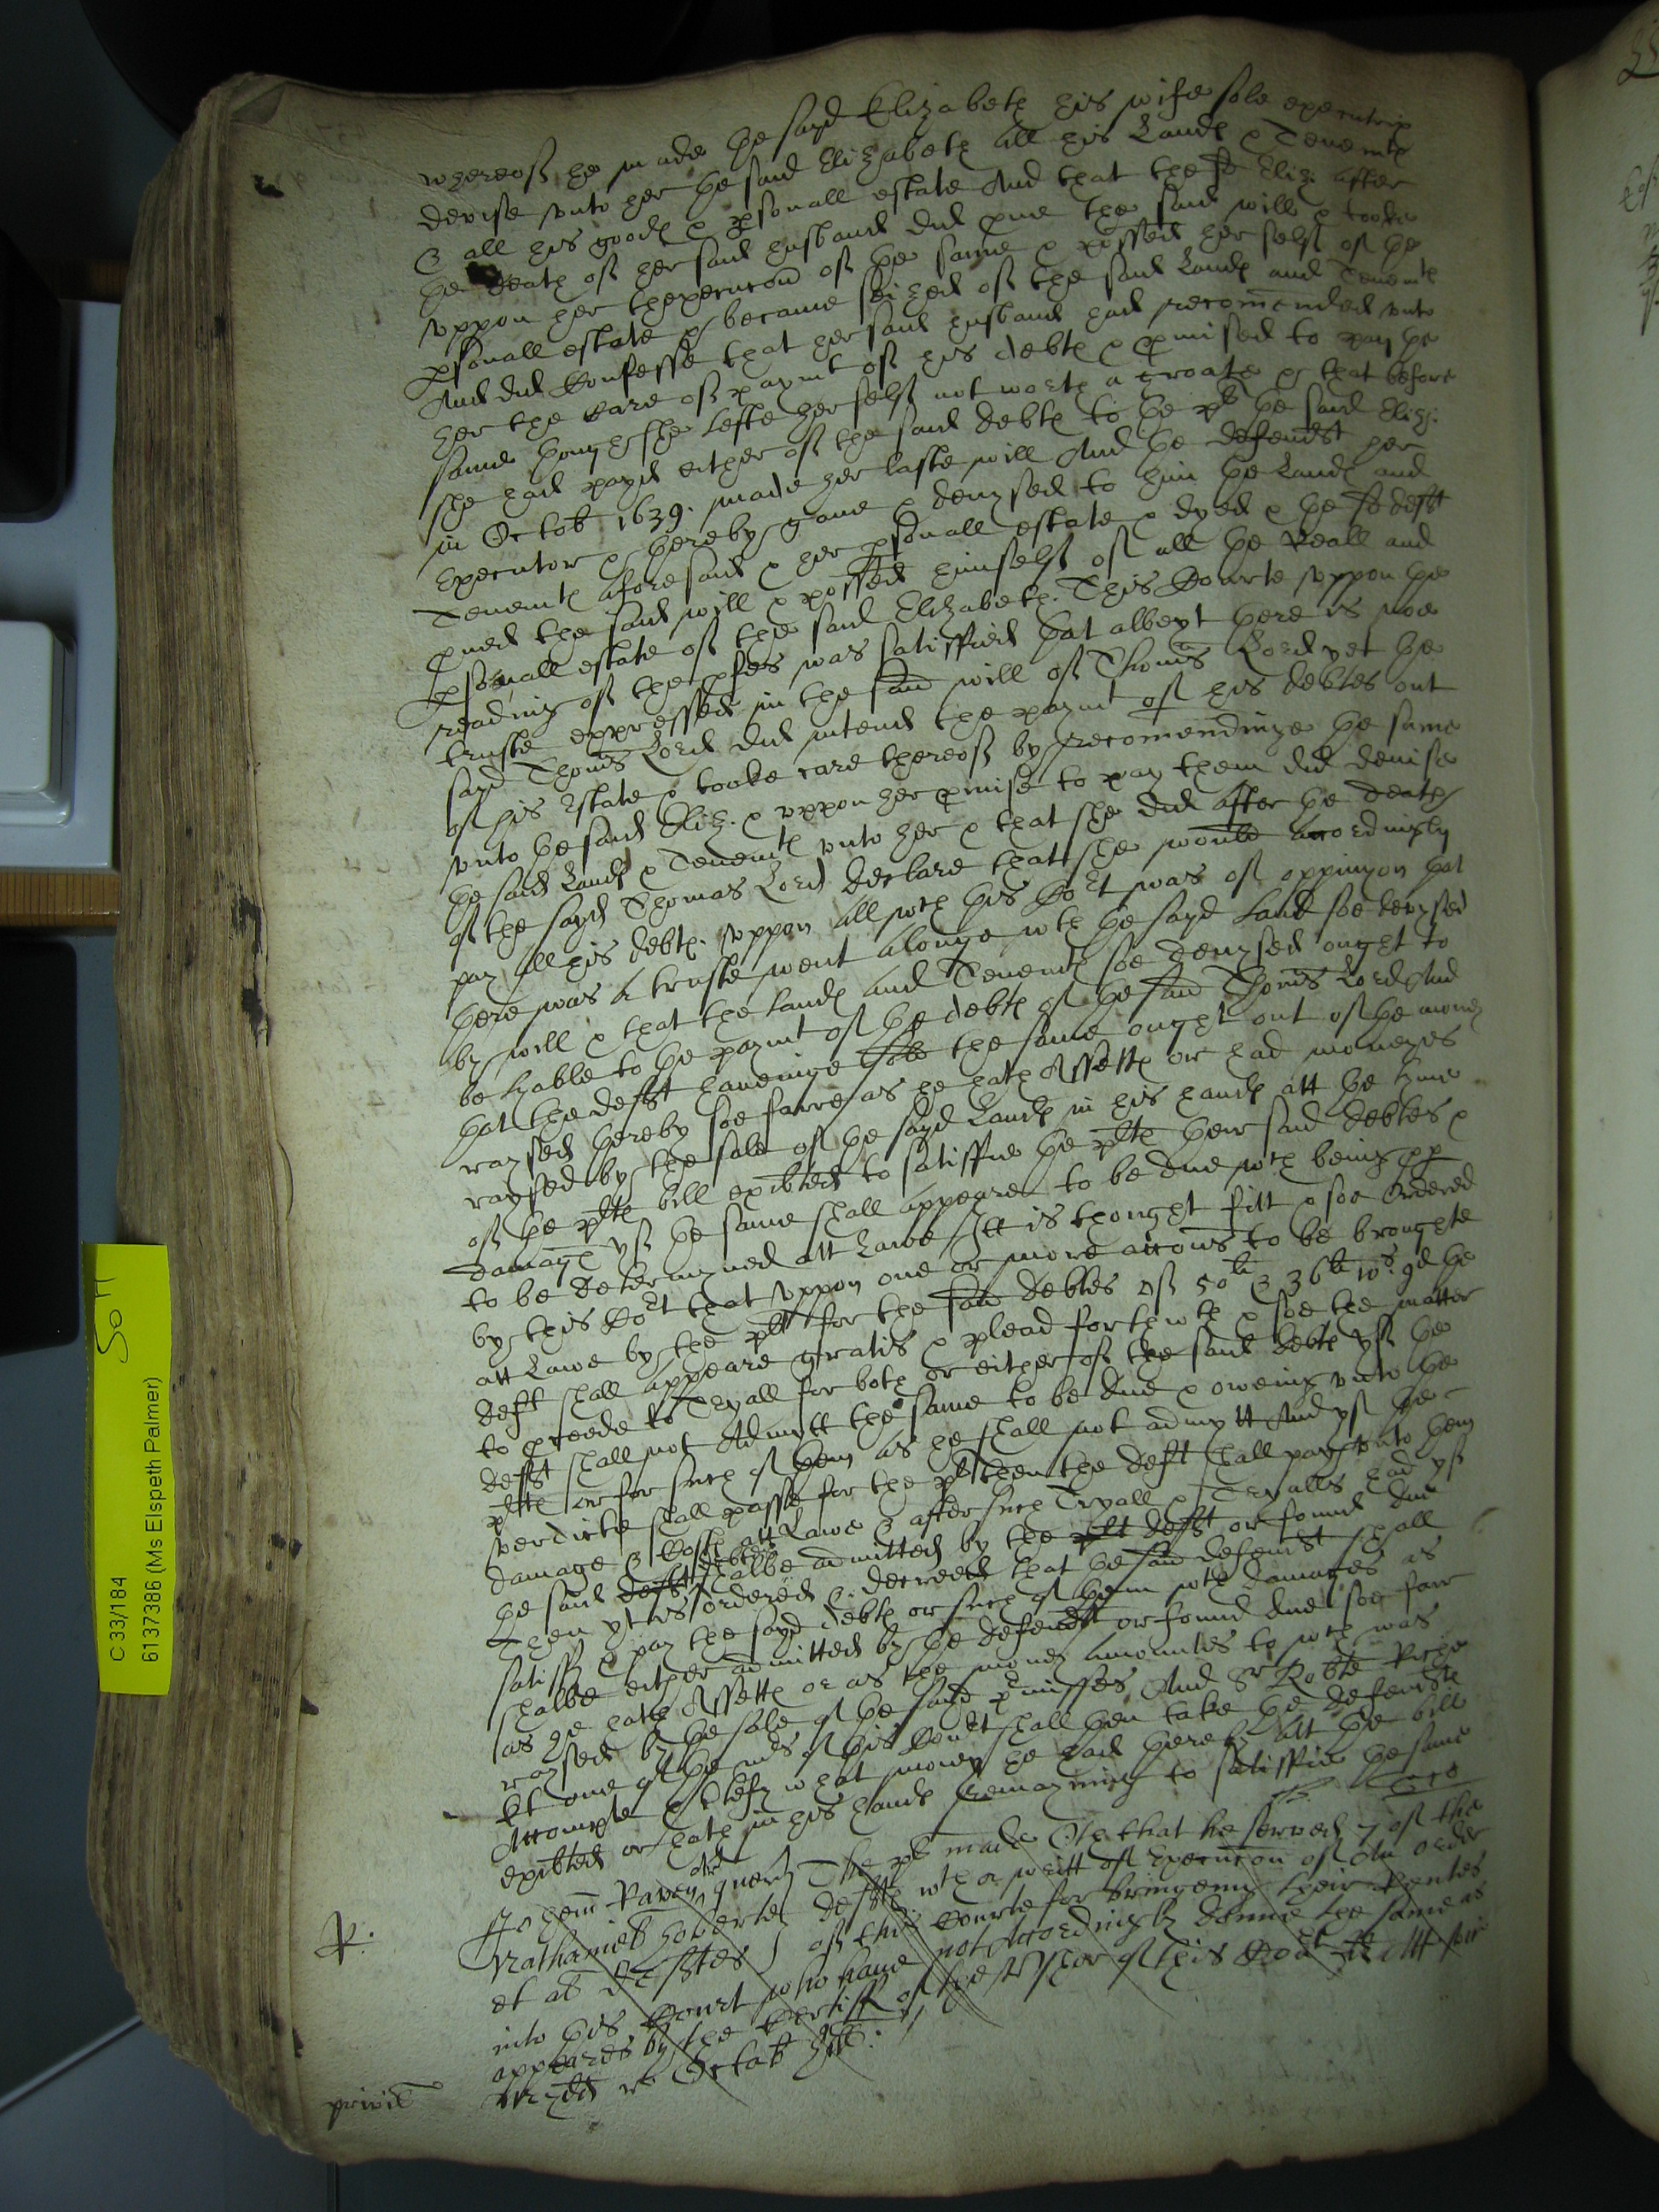 whereof he made the sayd Elizabeth his wife sole executrix
devise unto her the said Elizabeth all his Lands & Tenemts
& all his goods & psonall estate And that the sd Eliz. after
the death of her said husband did prove the said will & tooke
uppon her thexecucon of the same & possed her self of the
psonall estate & became seized of the said Lands and Tenemts
And did Confesse that her said husband had recomended unto
her the Care of paymt of his debts & pmised to pay the
same though she lefte her self not worth a groate & that before
she had payd either of the said debts to the plt the said Eliz.
in Octob 1639. made her laste will And the defendt her
Executor & thereby gave & devysed to him the Lands and
Tenemts aforesaid & her psonall estate & dyed & the sd deft
proved the said will & possed himself of all the Reall and
psonall estate of the said Elizabeth. This Courte uppon the
reading of the pfes was satisfied that albeyt there is noe
truste expressed in the said will of Thoms Lord yet the
sayd Thoms Lord did intend the paymt of his debtes out
of his Estate & tooke care thereof by recomendinge the same
unto the said Eliz. & uppon her pmise to pay them did devise
the said Lands & Tenemts unto her & that she did after the death
of the sayd Thomas Lord declare that she would accordingly
pay all his debts. uppon all wch this Cort was of oppinyon that
there was a truste went alonge wth the sayd Land soe devysed
by will & that the lands and Tenemts soe devysed ought to
be lyable to the paymt of the debts of the said Thoms Lord And
that the deft haveinge sold the same ought out of the money
raysed thereby soe farre as he hath Assetts or had moneyes
raysed by the sale of the sayd Lands in his hands att the tyme
of the plts bill exibited to satisfie the plts their said debtes &
damags yf the same shall appeare to be due wch being pp
to be determyned att Lawe Itt is thought fitt & soe Ordered
by this Cort that uppon one or more accons to be broughte
att Lawe by the plt for the said debtes of 50li & 36li 10s. 9d the
deft shall appeare gratis & plead forthwth & soe the matter
to proceede to Tryall for both or either of the said debts yf the
deft shall not Admytt the same to be due & oweing unto the
plts or for such of them as he shall not admytt And yf the
verdicte shall passe for the plt then the deft shall pay unto them
damage & Costs att Lawe & after such Tryall & Tryalls had yf
the said deft debtes shalbe admitted by the plt deft or found due
Then yt is Ordered & decreed that the said defendt shall
satisfy & pay the sayd debts or such of them wth damages as
shalbe either admitted by the defendt or found due soe farr
as he hath Assetts or as the money amountes to wch was
raysed by the sale of the sayd pmisses And Sr Robte Riche
kt one of the mrs of this Court shall then take the defendts
Accompte & certefy what money he had thereby att the bill
exibited or hath in his hands remayning to satisfie the same
The plt made Oth that he served 7 of the
Nathaniel defts wth a writt of Execucon of an order
et al deftes of this Courte for bringeing their Rentes
into this Court who have not Accordingly donne the same as
appeares by the Certiff of the of this Cort
Octob
R:
privil
C 33/184
6137386 (Ms Elspeth Palmer)